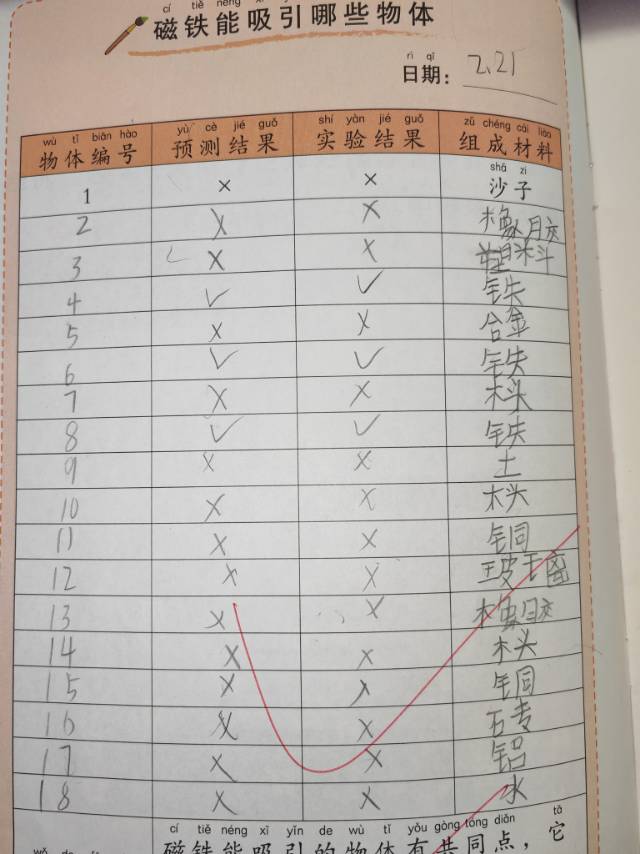 cí tiě néng xī yǐn nǎ xiē wù tǐ
磁铁能吸引哪些物体
rì qī
日期: 2.21
wù tǐ biān hào yù cè jié guǒ shí yàn jié guǒ zǔ chéng cái liào
物体编号 预测结果 实验结果 组成材料
shā zi
1 × × 沙子
2 × × 橡胶
3 × × 塑料
4 ✓ ✓ 铁
5 × × 合金
6 ✓ ✓ 铁
7 × × 木头
8 ✓ ✓ 铁
9 × × 土
10 × × 木头
11 × × 铜
12 × × 玻璃
13 × × 橡胶
14 × × 木头
15 × × 铜
16 × × 石专
17 × × 铝
18 × × 水
cí tiě néng xī yǐn de wù tǐ yǒu gòng tóng diǎn tā
磁铁能吸引的物体有共同点，它